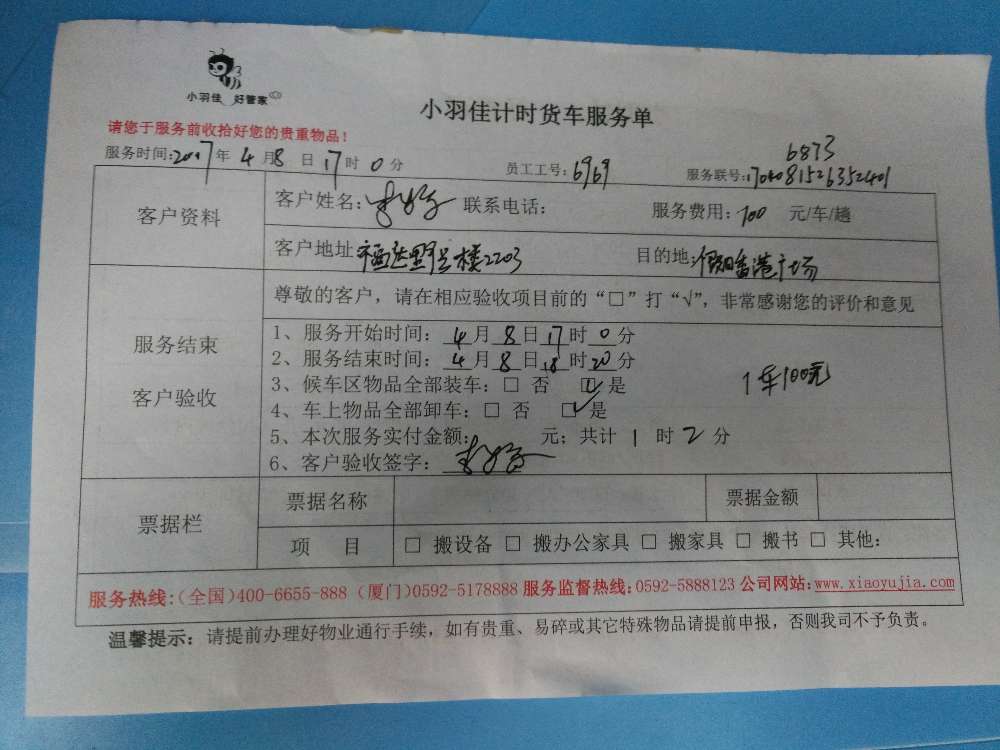 小羽佳 好管家
小羽佳计时货车服务单
请您于服务前收拾好您的贵重物品！
6873
服务时间:2017年 4月8日17时0分 员工工号: 6969 服务联号:1704081526352401
客户资料 客户姓名: 联系电话: 服务费用: 100 元/车/趟
客户地址: 楼2203 目的地: 假日香港广场
尊敬的客户，请在相应验收项目前的“□”打“√”，非常感谢您的评价和意见
服务结束
客户验收
1、服务开始时间: 4月8日17时0分
2、服务结束时间: 4月8日18时20分
3、候车区物品全部装车: □ 否 ☑是
1车100元
4、车上物品全部卸车: □ 否 ☑是
5、本次服务实付金额: 元; 共计 1 时 2 分
6、客户验收签字:
票据栏 票据名称 票据金额
项 目 □ 搬设备 □ 搬办公家具 □ 搬家具 □ 搬书 □ 其他:
服务热线:(全国)400-6655-888 (厦门)0592-5178888 服务监督热线: 0592-5888123 公司网站: www.xiaoyujia.com
温馨提示: 请提前办理好物业通行手续，如有贵重、易碎或其它特殊物品请提前申报，否则我司不予负责。